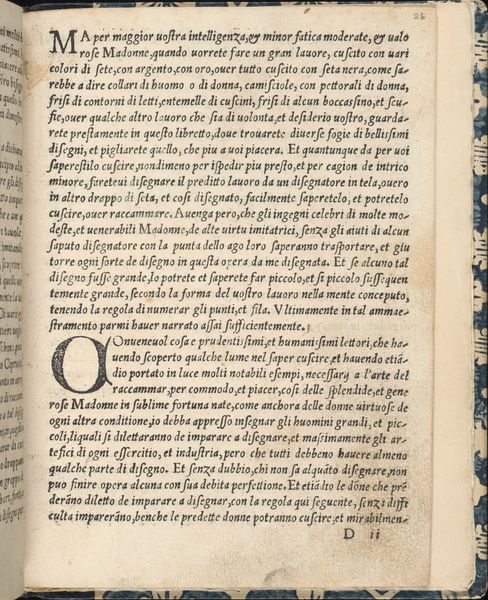 26
MA per maggior uostra intelligenza, & minor fatica moderate, & ualo
rose Madonne, quando uorrete fare un gran lauore, cuscito con uari
colori di sete, con argento, con oro, ouer tutto cuscito con seta nera, come sa-
rebbe a dire collari di huomo o di donna, camisciole, con pettorali di donna,
frisi di contorni di letti, entemelle di cuscini, frisi di alcun boccasino, et scu-
fie, ouer qualche altro lauoro che sia di uolonta, et desiderio uostro, guarda-
rete prestamente in questo libretto, doue trouarete diuerse fogie di bellissimi
disegni, et pigliarete quello, che piu a uoi piacera. Et quantunque da per uoi
saperestilo cuscire, nondimeno per ispedir piu presto, et per cagion de intrico
minore, fareteui disegnare il preditto lauoro da un disegnatore in tela, ouero
in altro drappo di seta, et cosi disegnato, facilmente saperetelo, et potretelo
cuscire, ouer raccammare. Auenga pero, che gli ingegni celebri di molte mo-
deste, et uenerabili Madonne, de alte uirtu imitatrici, senza gli aiuti di alcun
saputo disegnatore con la punta dello ago loro saperanno trasportare, et giu
torre ogni sorte de disegno in questa opera da me disegnata. Et se alcuno tal
disegno fusse grande, lo potrete et saperete far piccolo, et si piccolo sussequen
temente grande, secondo la forma del uostro lauoro nella mente conceputo,
tenendo la regola di numerar gli punti, et fila. Vltimamente in tal ammae-
stramento parmi hauer narrato assai sufficientemente.
COnueneuol cosa e prudentissimi, et humanissimi lettori, che ha-
uendo scoperto qualche lume nel saper cuscire, et hauendo etiã-
dio portato in luce molti notabili esempi, necessarij a l'arte del
raccammar, per commodo, et piacer, cosi delle splendide, et gene
rose Madonne in sublime fortuna nate, come anchora delle donne uirtuose de
ogni altra conditione, io debba appresso insegnar gli huomini grandi, et pic-
coli, liquali si dilettaranno de imparare a disegnare, et massimamente gli ar-
tefici di ogni essercitio, et industria, pero che tutti debbeno hauere almeno
qualche parte di disegno. Et senza dubbio, chi non sa alquãto disegnare, non
puo finire opera alcuna con sua debita perfettione. Et etiãdio le dõne che prẽ
derãno diletto de imparare a disegnar, con la regola qui seguente, senza diffi
culta impareràno, benche le predette donne potranno cuscire, et mirabilmen-
D ii